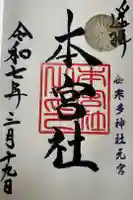 遥拝
本宮社
米多神社元宮
令和七年二月十九日